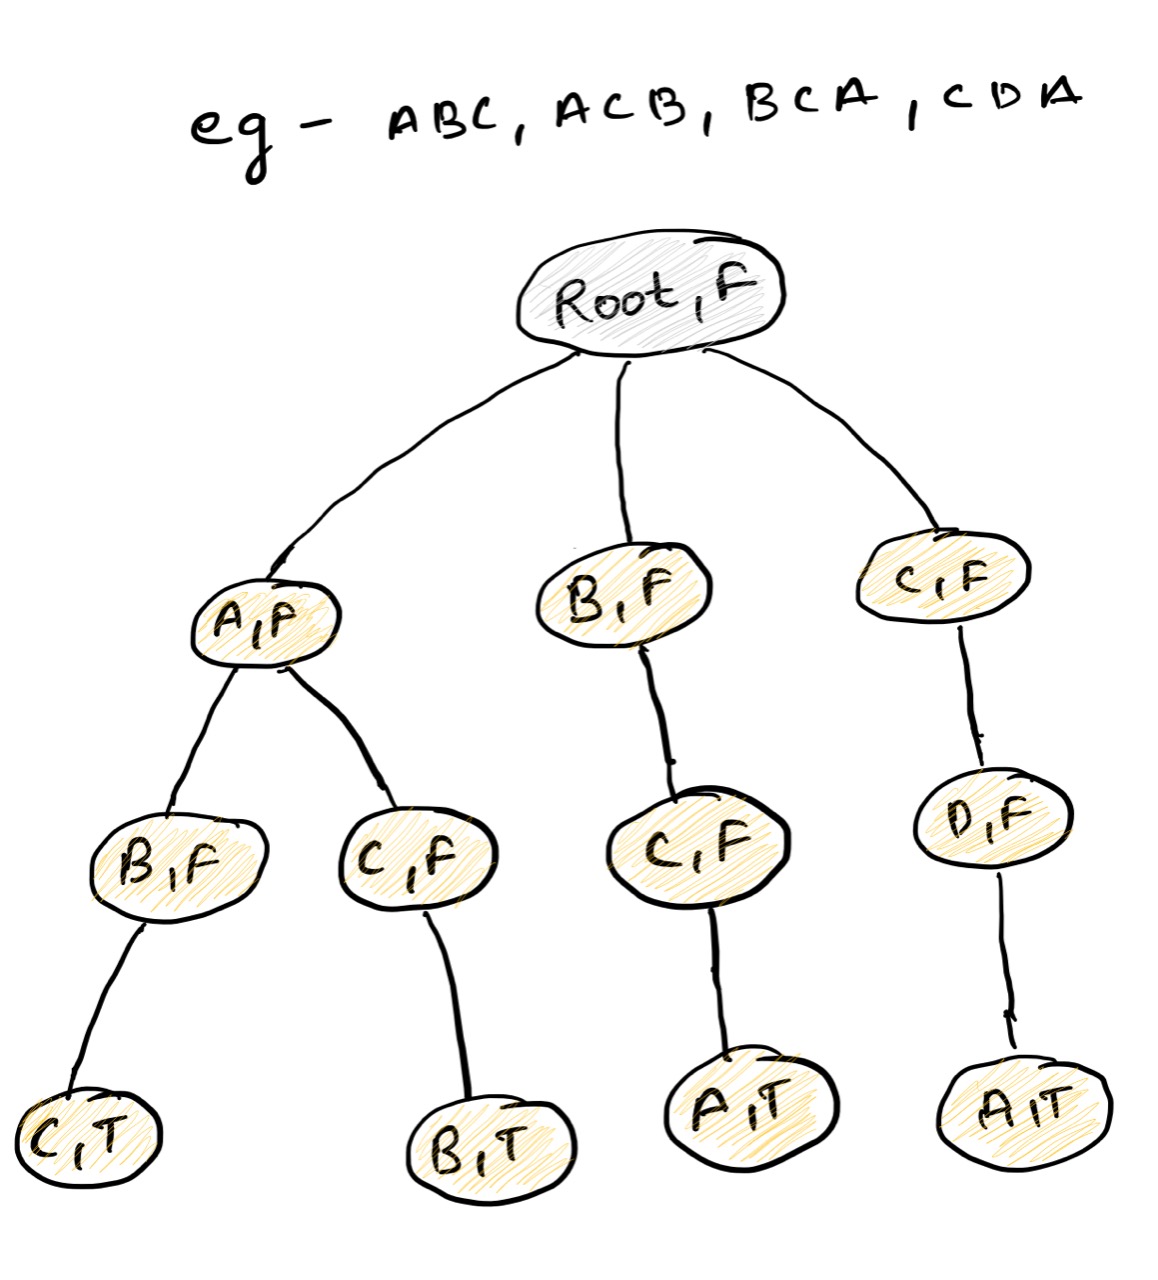 eg - ABC, ACB, BCA, CDA
Root, F
A, F
B, F
C, F
B, F
C, F
C, F
D, F
C, T
B, T
A, T
A, T